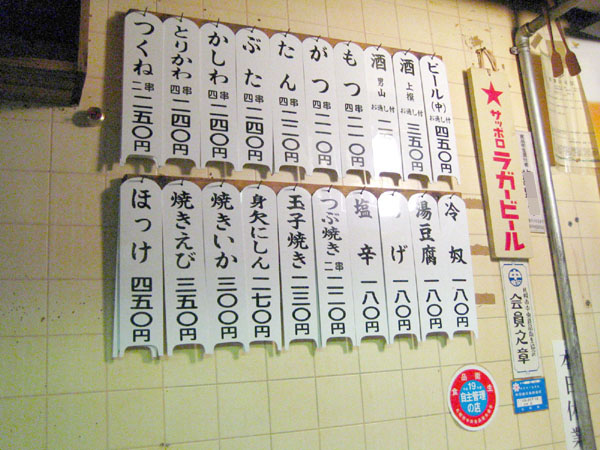 ビール(中) お通し付 四五〇円
酒 上撰 お通し付 三五〇円
酒 男山 お通し付
もつ 四串 二一〇円
がつ 四串 二一〇円
たん 四串 二二〇円
ぶた 四串 二四〇円
かしわ 四串 二四〇円
とりかわ 四串 二四〇円
つくね 二串 二五〇円
冷奴 一八〇円
湯豆腐 一八〇円
げ 一八〇円
塩辛 一八〇円
つぶ焼き 二串 二二〇円
玉子焼き 二三〇円
身欠にしん 二七〇円
焼きいか 三〇〇円
焼きえび 三五〇円
ほっけ 四五〇円
★サッポロラガービール
会員之章
本日休業
19
自主管理
の店